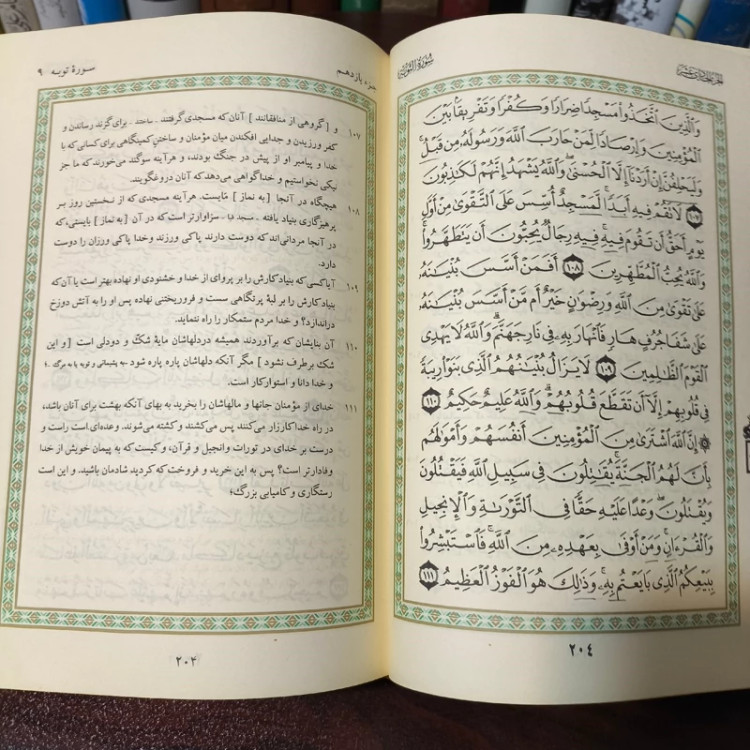 الجزء الحادی عشر
سُورَةُ التَّوبَة
وَالَّذِينَ ٱتَّخَذُوا۟ مَسْجِدًا ضِرَارًا وَكُفْرًا وَتَفْرِيقًۢا بَيْنَ
ٱلْمُؤْمِنِينَ وَإِرْصَادًا لِّمَنْ حَارَبَ ٱللَّهَ وَرَسُولَهُۥ مِن قَبْلُ
وَلَيَحْلِفُنَّ إِنْ أَرَدْنَآ إِلَّا ٱلْحُسْنَىٰ وَٱللَّهُ يَشْهَدُ إِنَّهُمْ لَكَٰذِبُونَ
۱۰۷ لَا تَقُمْ فِيهِ أَبَدًا لَّمَسْجِدٌ أُسِّسَ عَلَى ٱلتَّقْوَىٰ مِنْ أَوَّلِ
يَوْمٍ أَحَقُّ أَن تَقُومَ فِيهِ فِيهِ رِجَالٌ يُحِبُّونَ أَن يَتَطَهَّرُوا۟
وَٱللَّهُ يُحِبُّ ٱلْمُطَّهِّرِينَ ۱۰۸ أَفَمَنْ أَسَّسَ بُنْيَٰنَهُۥ
عَلَىٰ تَقْوَىٰ مِنَ ٱللَّهِ وَرِضْوَٰنٍ خَيْرٌ أَم مَّنْ أَسَّسَ بُنْيَٰنَهُۥ
عَلَىٰ شَفَا جُرُفٍ هَارٍ فَٱنْهَارَ بِهِۦ فِى نَارِ جَهَنَّمَ وَٱللَّهُ لَا يَهْدِى
ٱلْقَوْمَ ٱلظَّٰلِمِينَ ۱۰۹ لَا يَزَالُ بُنْيَٰنُهُمُ ٱلَّذِى بَنَوْا۟ رِيبَةً
فِى قُلُوبِهِمْ إِلَّآ أَن تَقَطَّعَ قُلُوبُهُمْ وَٱللَّهُ عَلِيمٌ حَكِيمٌ ۱۱۰
۞ إِنَّ ٱللَّهَ ٱشْتَرَىٰ مِنَ ٱلْمُؤْمِنِينَ أَنفُسَهُمْ وَأَمْوَٰلَهُم
بِأَنَّ لَهُمُ ٱلْجَنَّةَ يُقَٰتِلُونَ فِى سَبِيلِ ٱللَّهِ فَيَقْتُلُونَ
وَيُقْتَلُونَ وَعْدًا عَلَيْهِ حَقًّا فِى ٱلتَّوْرَىٰةِ وَٱلْإِنجِيلِ
وَٱلْقُرْءَانِ وَمَنْ أَوْفَىٰ بِعَهْدِهِۦ مِنَ ٱللَّهِ فَٱسْتَبْشِرُوا۟
بِبَيْعِكُمُ ٱلَّذِى بَايَعْتُم بِهِۦ وَذَٰلِكَ هُوَ ٱلْفَوْزُ ٱلْعَظِيمُ ۱۱۱
۲۰۴
جزء یازدهم
سورهٔ توبه ۹
۱۰۷ و [ گروهی از منافقانند ] آنان که مسجدی گرفتند ـ ساختند ـ برای گزند رساندن و
کفر ورزیدن و جدایی افکندن میان مؤمنان و ساختن کمینگاهی برای کسانی که با
خدا و پیامبر او از پیش در جنگ بودند، و هرآینه سوگند می‌خورند که ما جز
نیکی نخواستیم و خدا گواهی می‌دهد که آنان دروغگویند.
۱۰۸ هیچگاه در آنجا [ به نماز ] مایست. هرآینه مسجدی که از نخستین روز بر
پرهیزگاری بنیاد یافته ـ مسجد قبا ـ سزاوارتر است که در آن [ به نماز ] بایستی، که
در آنجا مردانی‌اند که دوست دارند پاکی ورزند وخدا پاکی ورزان را دوست
دارد.
۱۰۹ آیا کسی که بنیاد کارش را بر پروای از خدا و خشنودی او نهاده بهتر است یا آن که
بنیاد کارش را بر لبهٔ پرتگاهی سست و فروریختنی نهاده پس او را به آتش دوزخ
دراندازد؟ و خدا مردم ستمکار را راه ننماید.
۱۱۰ آن بنایشان که برآوردند همیشه دردلهاشان مایهٔ شک و دودلی است [ و این
شک برطرف نشود ] مگر آنکه دلهاشان پاره پاره شود ـ به پشیمانی و توبه یا به مرگ ـ؛
و خدا دانا و استوارکار است.
۱۱۱ خدای از مؤمنان جانها و مالهاشان را بخرید به بهای آنکه بهشت برای آنان باشد،
در راه خدا کارزار می‌کنند پس می‌کشند و کشته می‌شوند. وعده‌ای است راست و
درست بر خدای در تورات وانجیل و قرآن، وکیست که به پیمان خویش از خدا
وفادارتر است؟ پس به این خرید و فروخت که کردید شادمان باشید. و این است
رستگاری و کامیابی بزرگ؛
۲۰۴